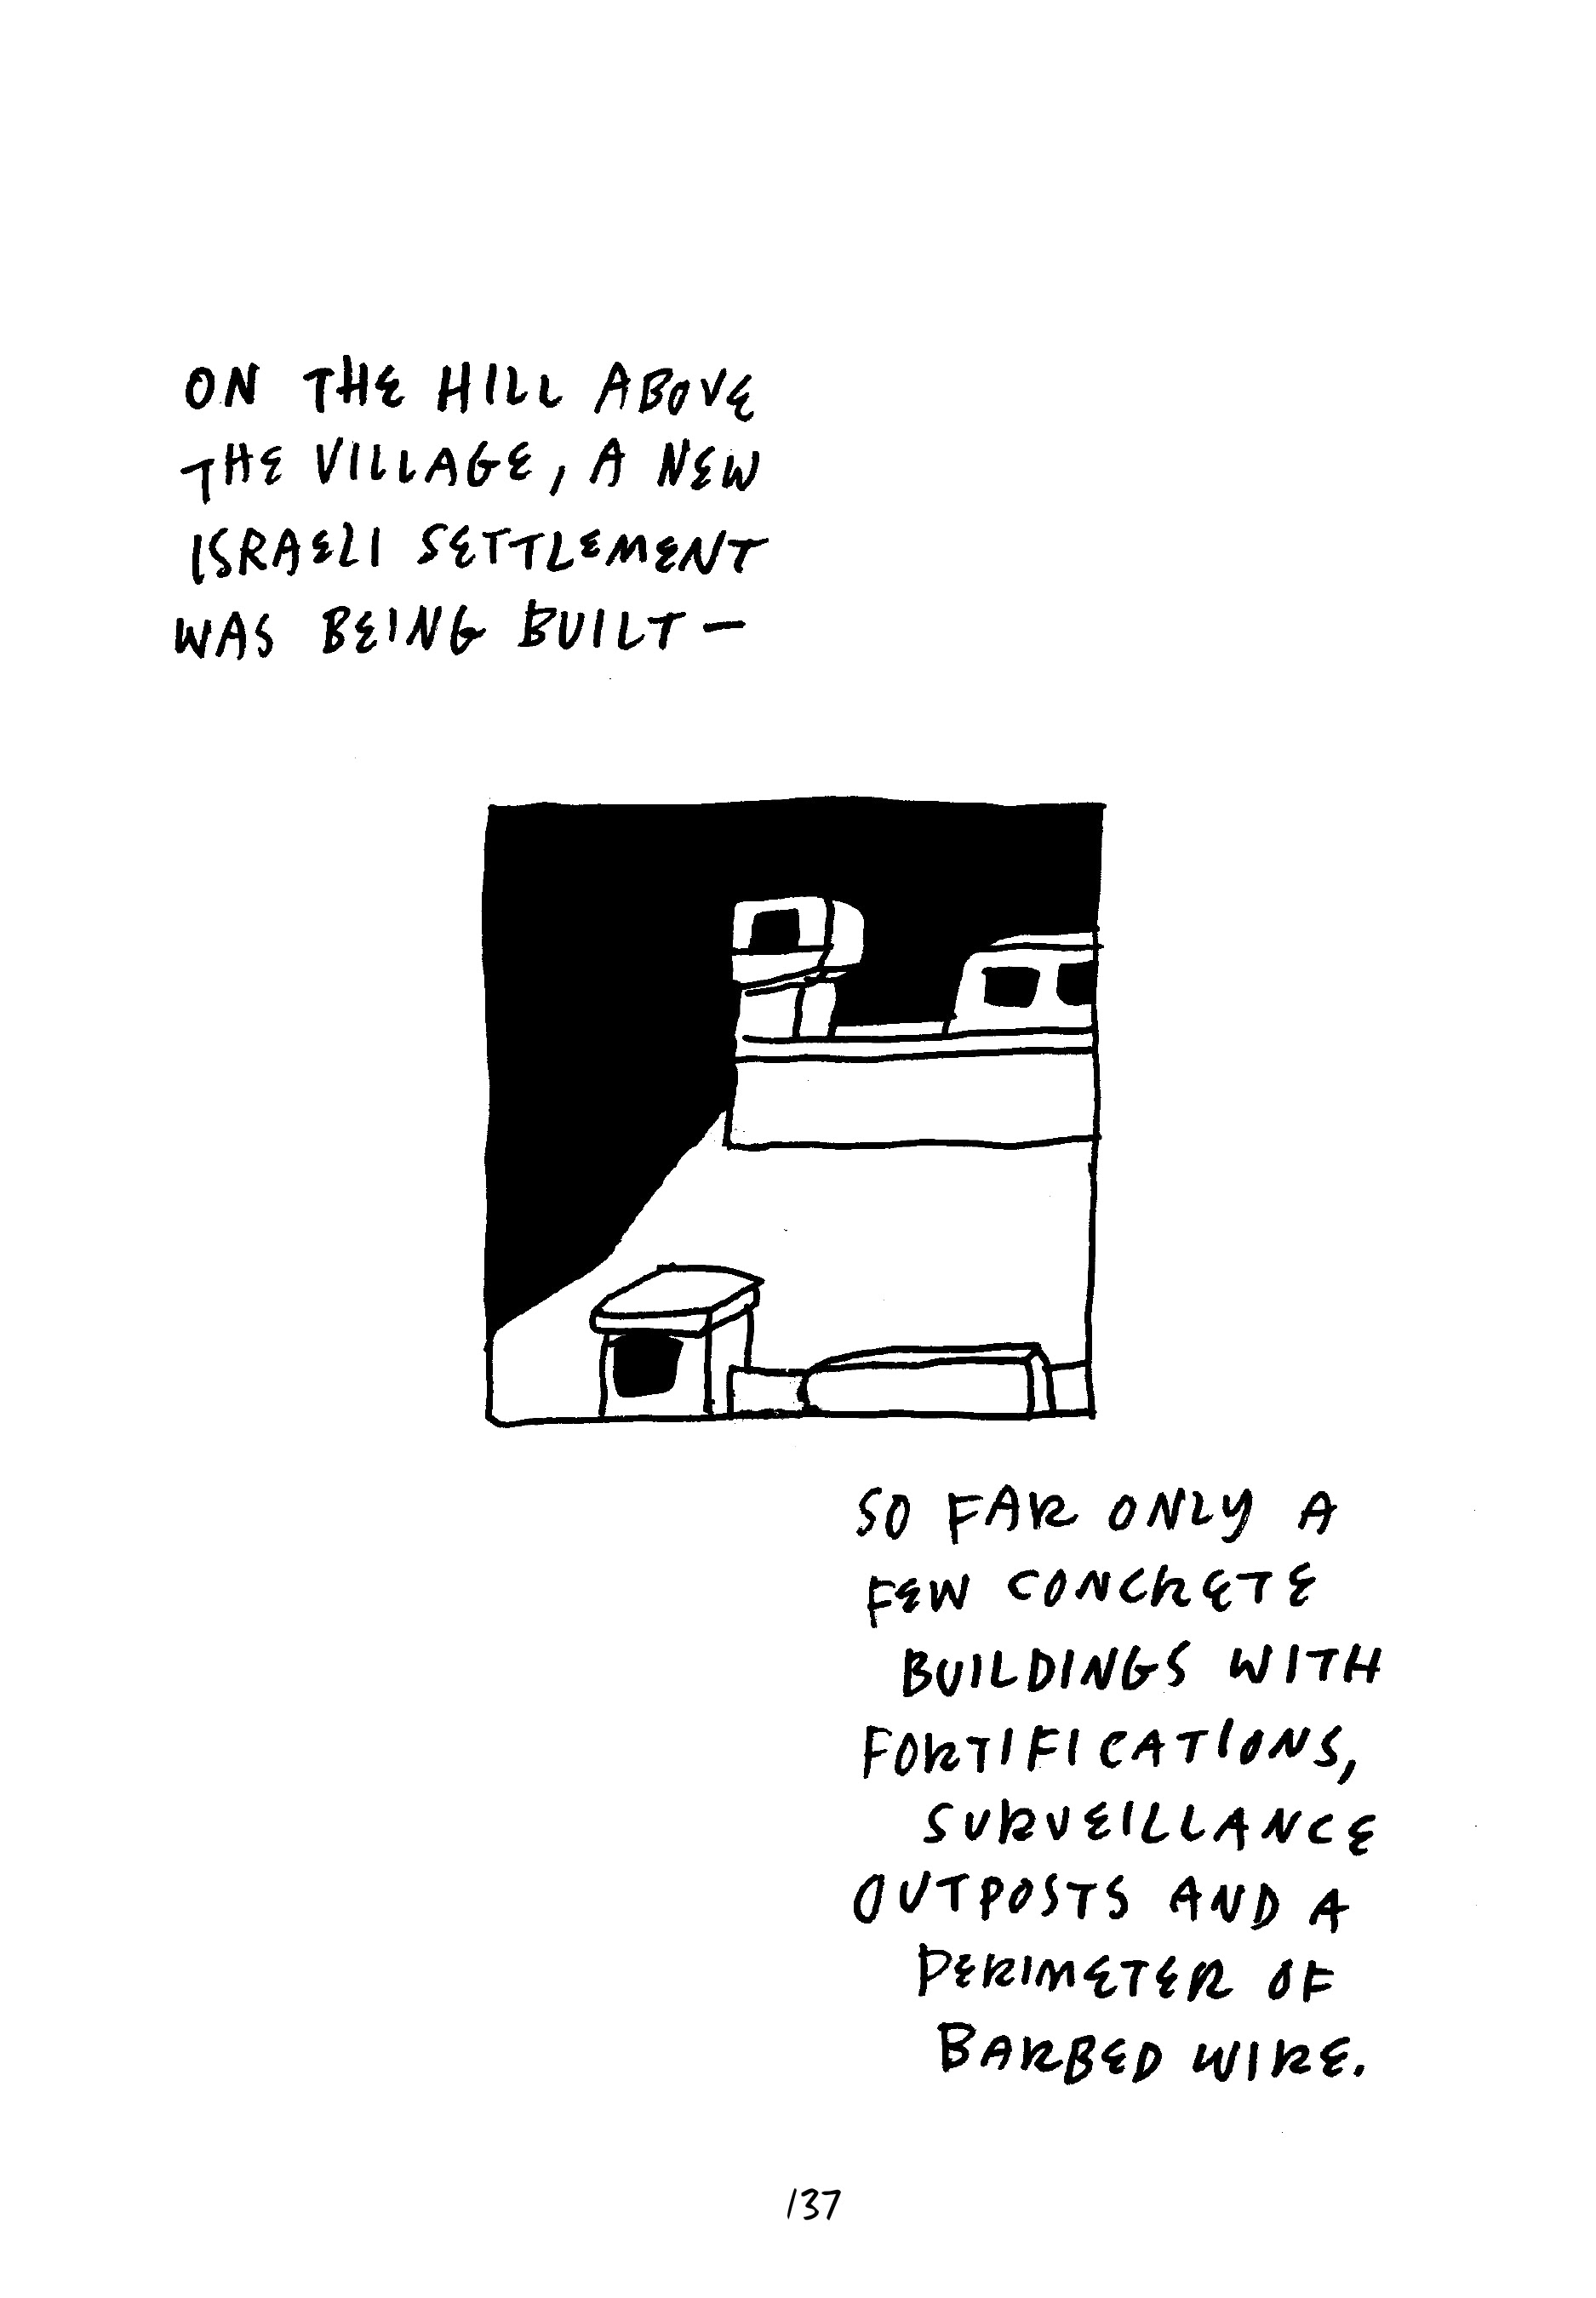 ON THE HILL ABOVE
THE VILLAGE, A NEW
ISRAELI SETTLEMENT
WAS BEING BUILT—
SO FAR ONLY A
FEW CONCRETE
BUILDINGS WITH
FORTIFICATIONS,
SURVEILLANCE
OUTPOSTS AND A
PERIMETER OF
BARBED WIRE.
137